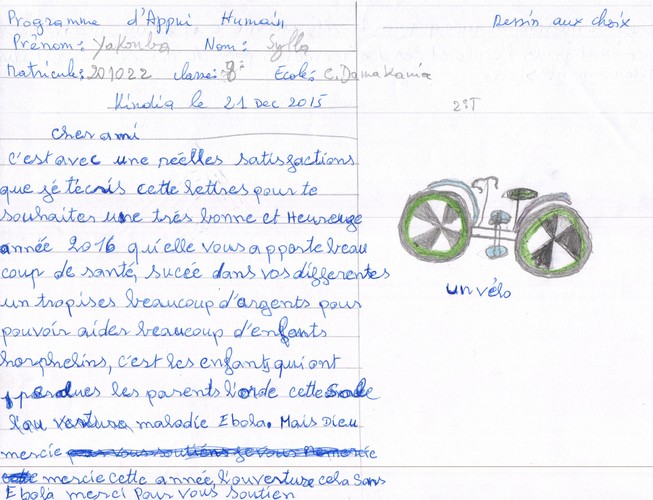 Programme d'Appui Humain
Prénom: Yakouba Nom: Sylla
Matricule: 201022 classe: 8e École: C. Damakania
Kindia le 21 Dec 2015
cher ami
c'est avec une réelles satisfactions
que jé t'écris cette lettres pour te
souhaiter une très bonne et Heureuze
année 2016 qu'elle vous apporte beau
coup de santé, sucée dans vos differentes
un trapises beaucoup d'argents pour
pouvoir aider beaucoup d'enfants
horphelins, c'est les enfants qui ont
perdues les parents l'orde cette
maladie Ebola. Mais Dieu
mercie
mercie cette année, l'ouverture cela sans
Ebola merci pour vous soutien
Dessin aux choix
23T
un vélo